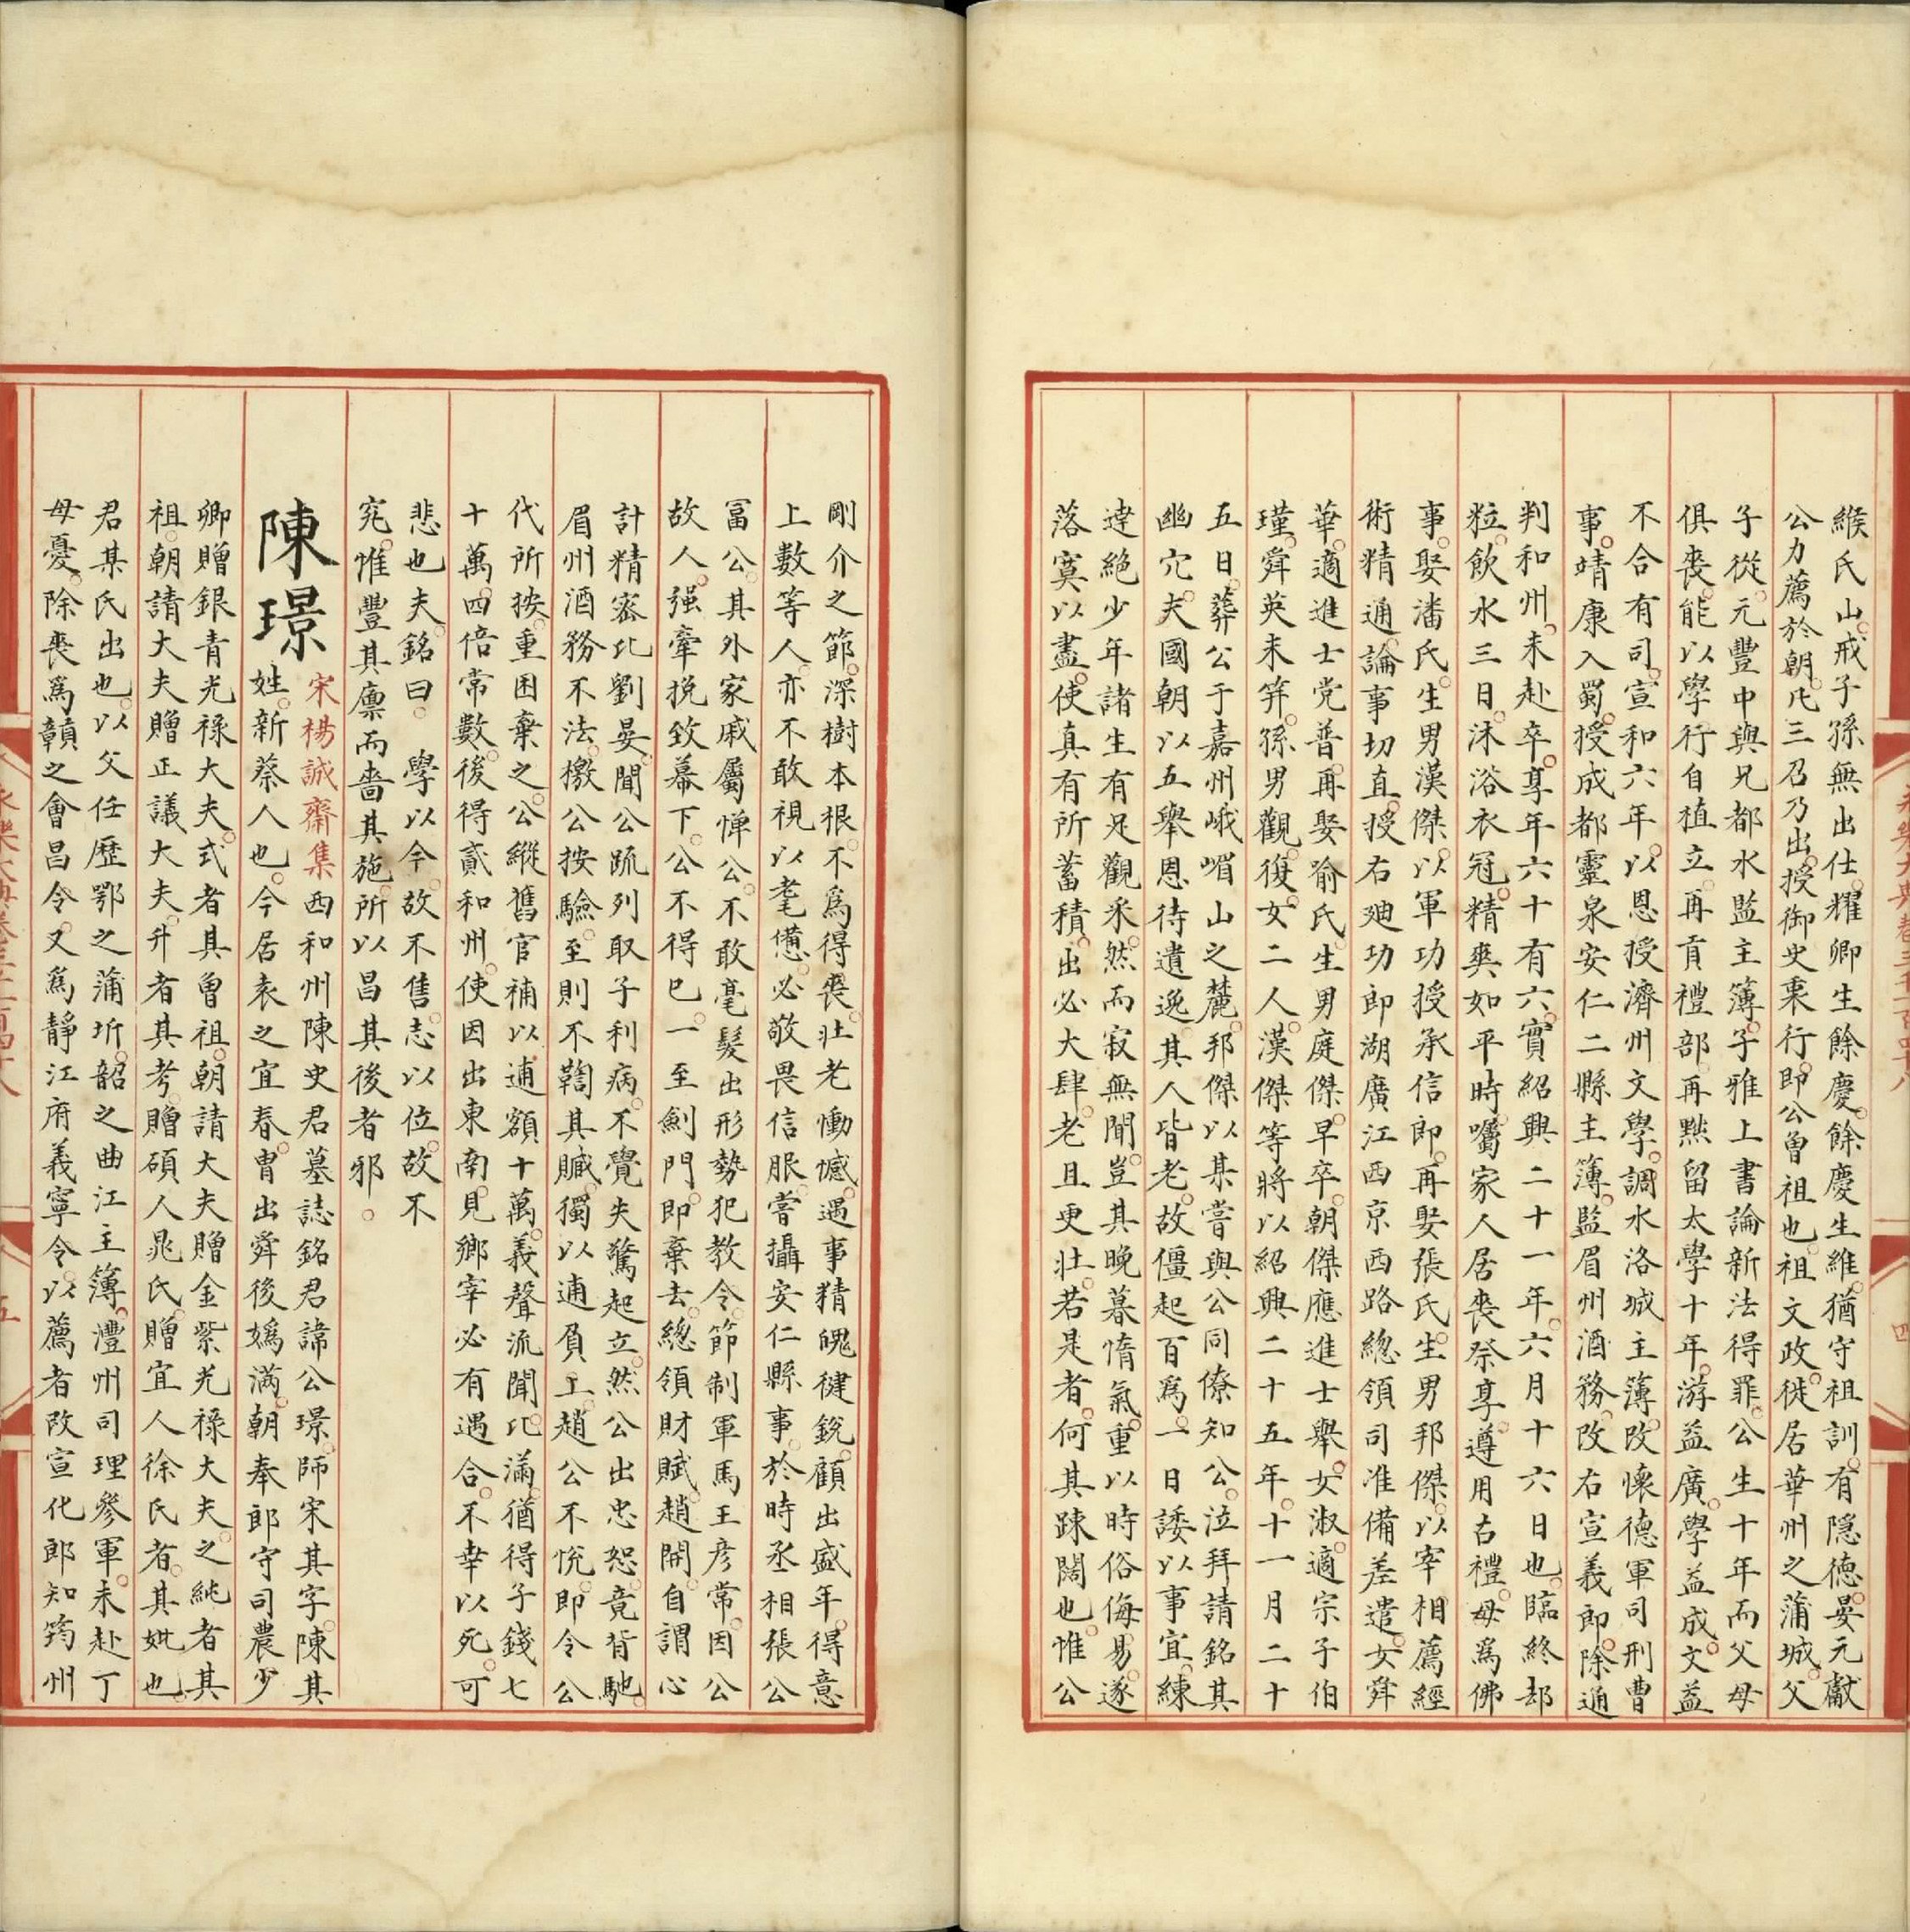 緱氏山戒子孫無出仕耀卿生餘慶餘慶生維猶守祖訓有隱德晏元獻
公力薦於朝凡三召乃出授御史裏行即公曾祖也祖文政徙居華州之蒲城父
子從元豐中與兄都水監主簿子雅上書論新法得罪公生十年而父母
俱喪能以學行自植立再貢禮部再黜留太學十年游益廣學益成文益
不合有司宣和六年以恩授濟州文學調水洛城主簿改懷德軍司刑曹
事靖康入蜀授成都靈泉安仁二縣主簿監眉州酒務改右宣義郎除通
判和州未赴卒享年六十有六實紹興二十一年六月十六日也臨終却
粒飲水三日沐浴衣冠精爽如平時囑家人居喪祭享遵用古禮毋爲佛
事娶潘氏生男漢傑以軍功授承信郎再娶張氏生男邦傑以宰相薦經
術精通論事切直授右廸功郎湖廣江西京西路總領司准備差遣女舜
華適進士党普再娶喻氏生男庭傑早卒朝傑應進士舉女淑適宗子伯
瑾舜英未笄孫男觀復女二人漢傑等將以紹興二十五年十一月二十
五日葬公于嘉州峨嵋山之麓邦傑以某嘗與公同僚知公泣拜請銘其
幽穴夫國朝以五舉恩待遺逸其人皆老故僵起百爲一日諉以事宜練
達絶少年諸生有足觀采然而寂無聞豈其晚暮惰氣重以時俗侮易遂
落寞以盡使真有所蓄積出必大肆老且更壯若是者何其踈闊也惟公
剛介之節深樹本根不爲得喪壯老慟憾遇事精魄健銳顧出盛年得意
上數等人亦不敢視以耄憊必敬畏信服嘗攝安仁縣事於時丞相張公
冨公其外家戚屬憚公不敢毫髮出形勢犯教令節制軍馬王彥常因公
故人强牽挽致幕下公不得已一至劍門即棄去總領財賦趙開自謂心
計精密比劉晏聞公疏列取予利病不覺失驚起立然公出忠恕竟背馳
眉州酒務不法檄公按驗至則不鞫其贓獨以逋負上趙公不悅即令公
代所按重困棄之公縱舊官補以逋額十萬義聲流聞比滿猶得子錢七
十萬四倍常數後得貳和州使因出東南見鄉宰必有遇合不幸以死可
悲也夫銘曰 學以今故不售志以位故不
究惟豐其廩而嗇其施所以昌其後者邪
陳璟 宋楊誠齋集西和州陳史君墓誌銘君諱公璟師宋其字陳其
姓新蔡人也今居袁之宜春冑出舜後嬀滿朝奉郎守司農少
卿贈銀青光祿大夫式者其曾祖朝請大夫贈金紫光祿大夫之純者其
祖朝請大夫贈正議大夫升者其考贈碩人晁氏贈宜人徐氏者其妣也
君某氏出也以父任歷鄂之蒲圻韶之曲江主簿澧州司理參軍未赴丁
母憂除喪爲贛之會昌令又爲靜江府義寧令以薦者改宣化郎知筠州